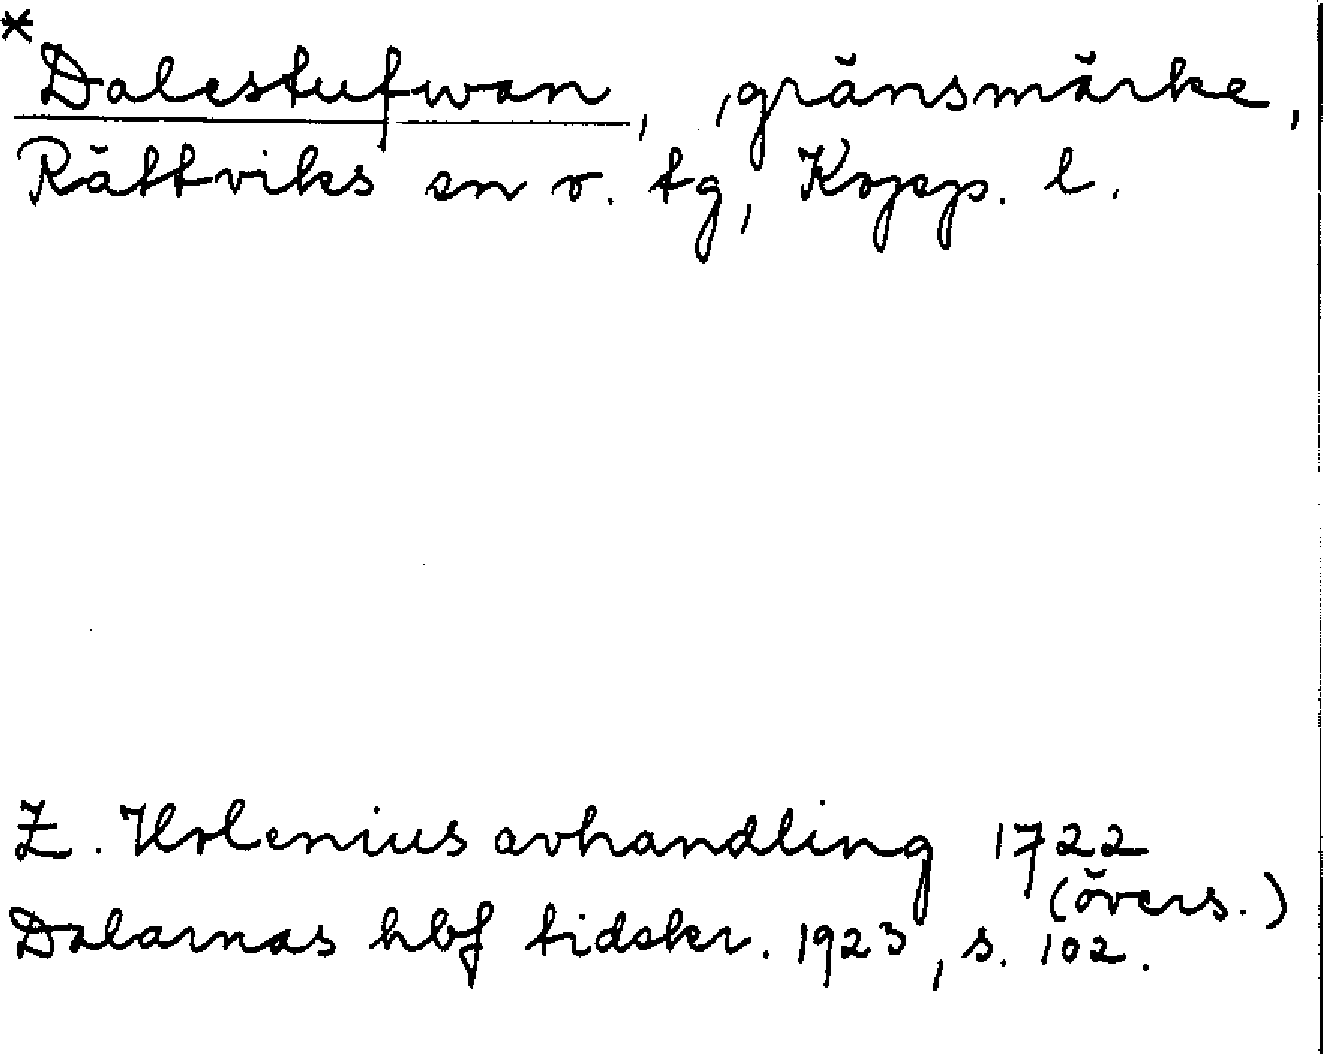 *
Dalestufwan, gränsmärke,
Rättviks sn o. tg, Kopp. l.
Z. Holenius avhandling 1722
(övers.)
Dalarnas hbf tidskr. 1923, s. 102.